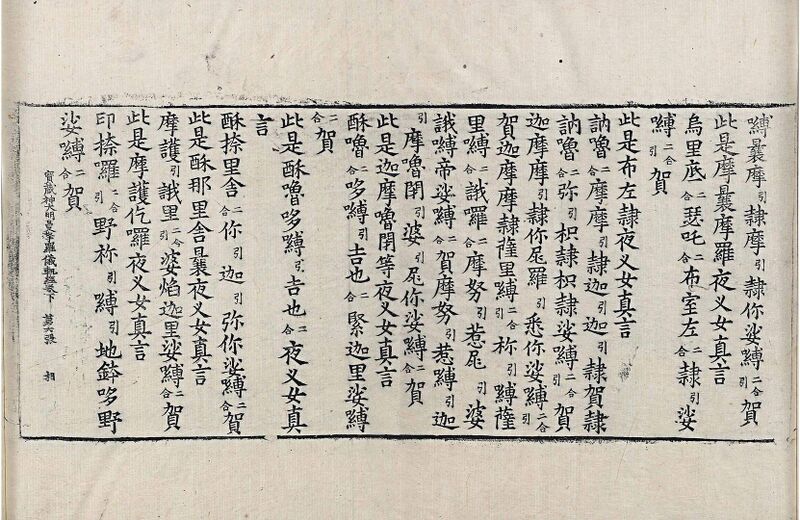 縛曩摩引隸摩引隸你娑縛二合引賀
此是摩曩摩羅夜叉女真言
烏里底二合瑟吒二合布室左二合隸引娑
縛二合引賀
此是布左隸夜叉女真言
訥嚕二合摩摩引隸迦引迦引隸賀隸
訥嚕二合弥引枳隸枳隸娑縛二合引賀
迦摩摩引隸你屁羅引㤄你娑縛二合引
賀迦摩摩隸薩里縛二合祢引縛薩
里縛二合誐羅二合摩努引惹屁引婆
誐縛帝娑縛二合賀摩努引惹縛引迦
引摩嚕閉引婆引屁你娑縛二合賀
此是迦摩嚕閉等夜叉女真言
酥嚕二合哆縛引吉也二合緊迦里娑縛
二合賀
此是酥嚕哆縛引吉也二合夜叉女真
言
酥捺里舍二合你引迦引弥你娑縛二合賀
此是酥那里舍曩夜叉女真言
摩護引誐里引二合婆焰迦里娑縛二合賀
此是摩護仡羅夜叉女真言
印捺囉二合引野祢引縛引地鉢哆野
娑縛二合賀
寶藏神大明曼拏羅儀軌經卷下 第六張 相